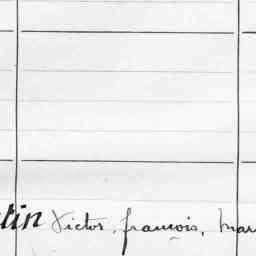 tin Victor, françois, mar